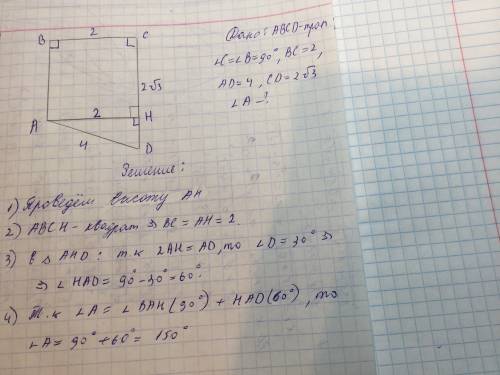 B 2 C
Дано: ABCD-трап.
∠C=∠B=90°, BC=2,
AD=4, CD=2√3
∠A-?
2√3
2
A H
4
D
Решение:
1) Проведём высоту AH
2) ABCH - квадрат ⇒ BC = AH = 2.
3) В Δ AHD: т.к 2AH = AD, то ∠D = 30° ⇒
⇒ ∠HAD = 90° - 30° = 60°.
4) Т.к ∠A = ∠BAH (90°) + HAD (60°), то
∠A = 90° + 60° = 150°